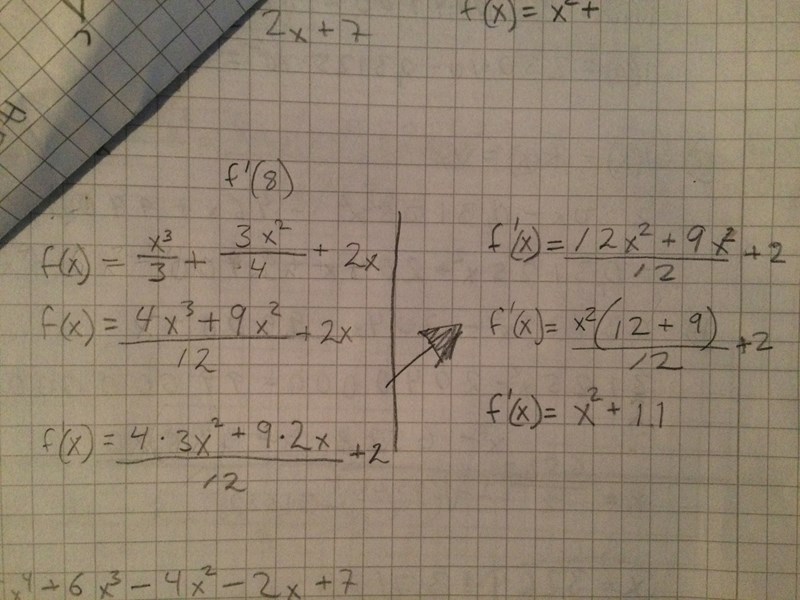 2x + 7
f(x) = x² +
f'(8)
f(x) = x³/3 + 3x²/4 + 2x
f(x) = (4x³ + 9x²)/12 + 2x
f(x) = (4 · 3x² + 9 · 2x)/12 + 2
f'(x) = (12x² + 9x²)/12 + 2
f'(x) = x²(12 + 9)/12 + 2
f'(x) = x² + 11
x⁴ + 6x³ - 4x² - 2x + 7